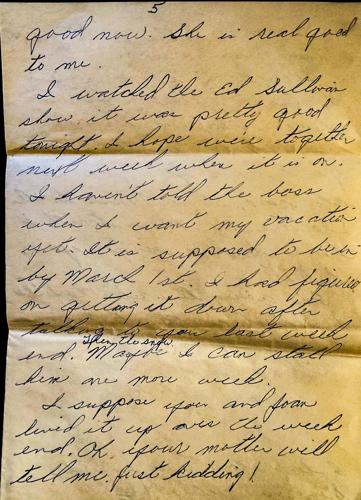 5
good now. She is real good
to me.
I watched the Ed Sullivan
show it was pretty good
tonight. I hope were together
next week when it is on.
I haven't told the boss
when I want my vacation
yet. It is supposed to be in
by March 1st. I had figured
on getting it down after
talking to you last week
then the snow.
end. Maybe I can stall
him one more week.
I suppose you and Joan
lived it up over the week
end. Oh, your mother will
tell me. Just kidding!